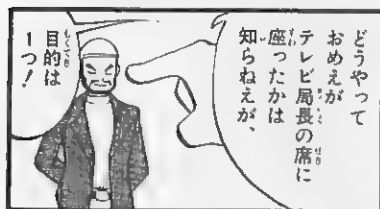 どうやって
おめえが
テレビ局長の席に
座ったかは
知らねえが、
目的は
1つ!